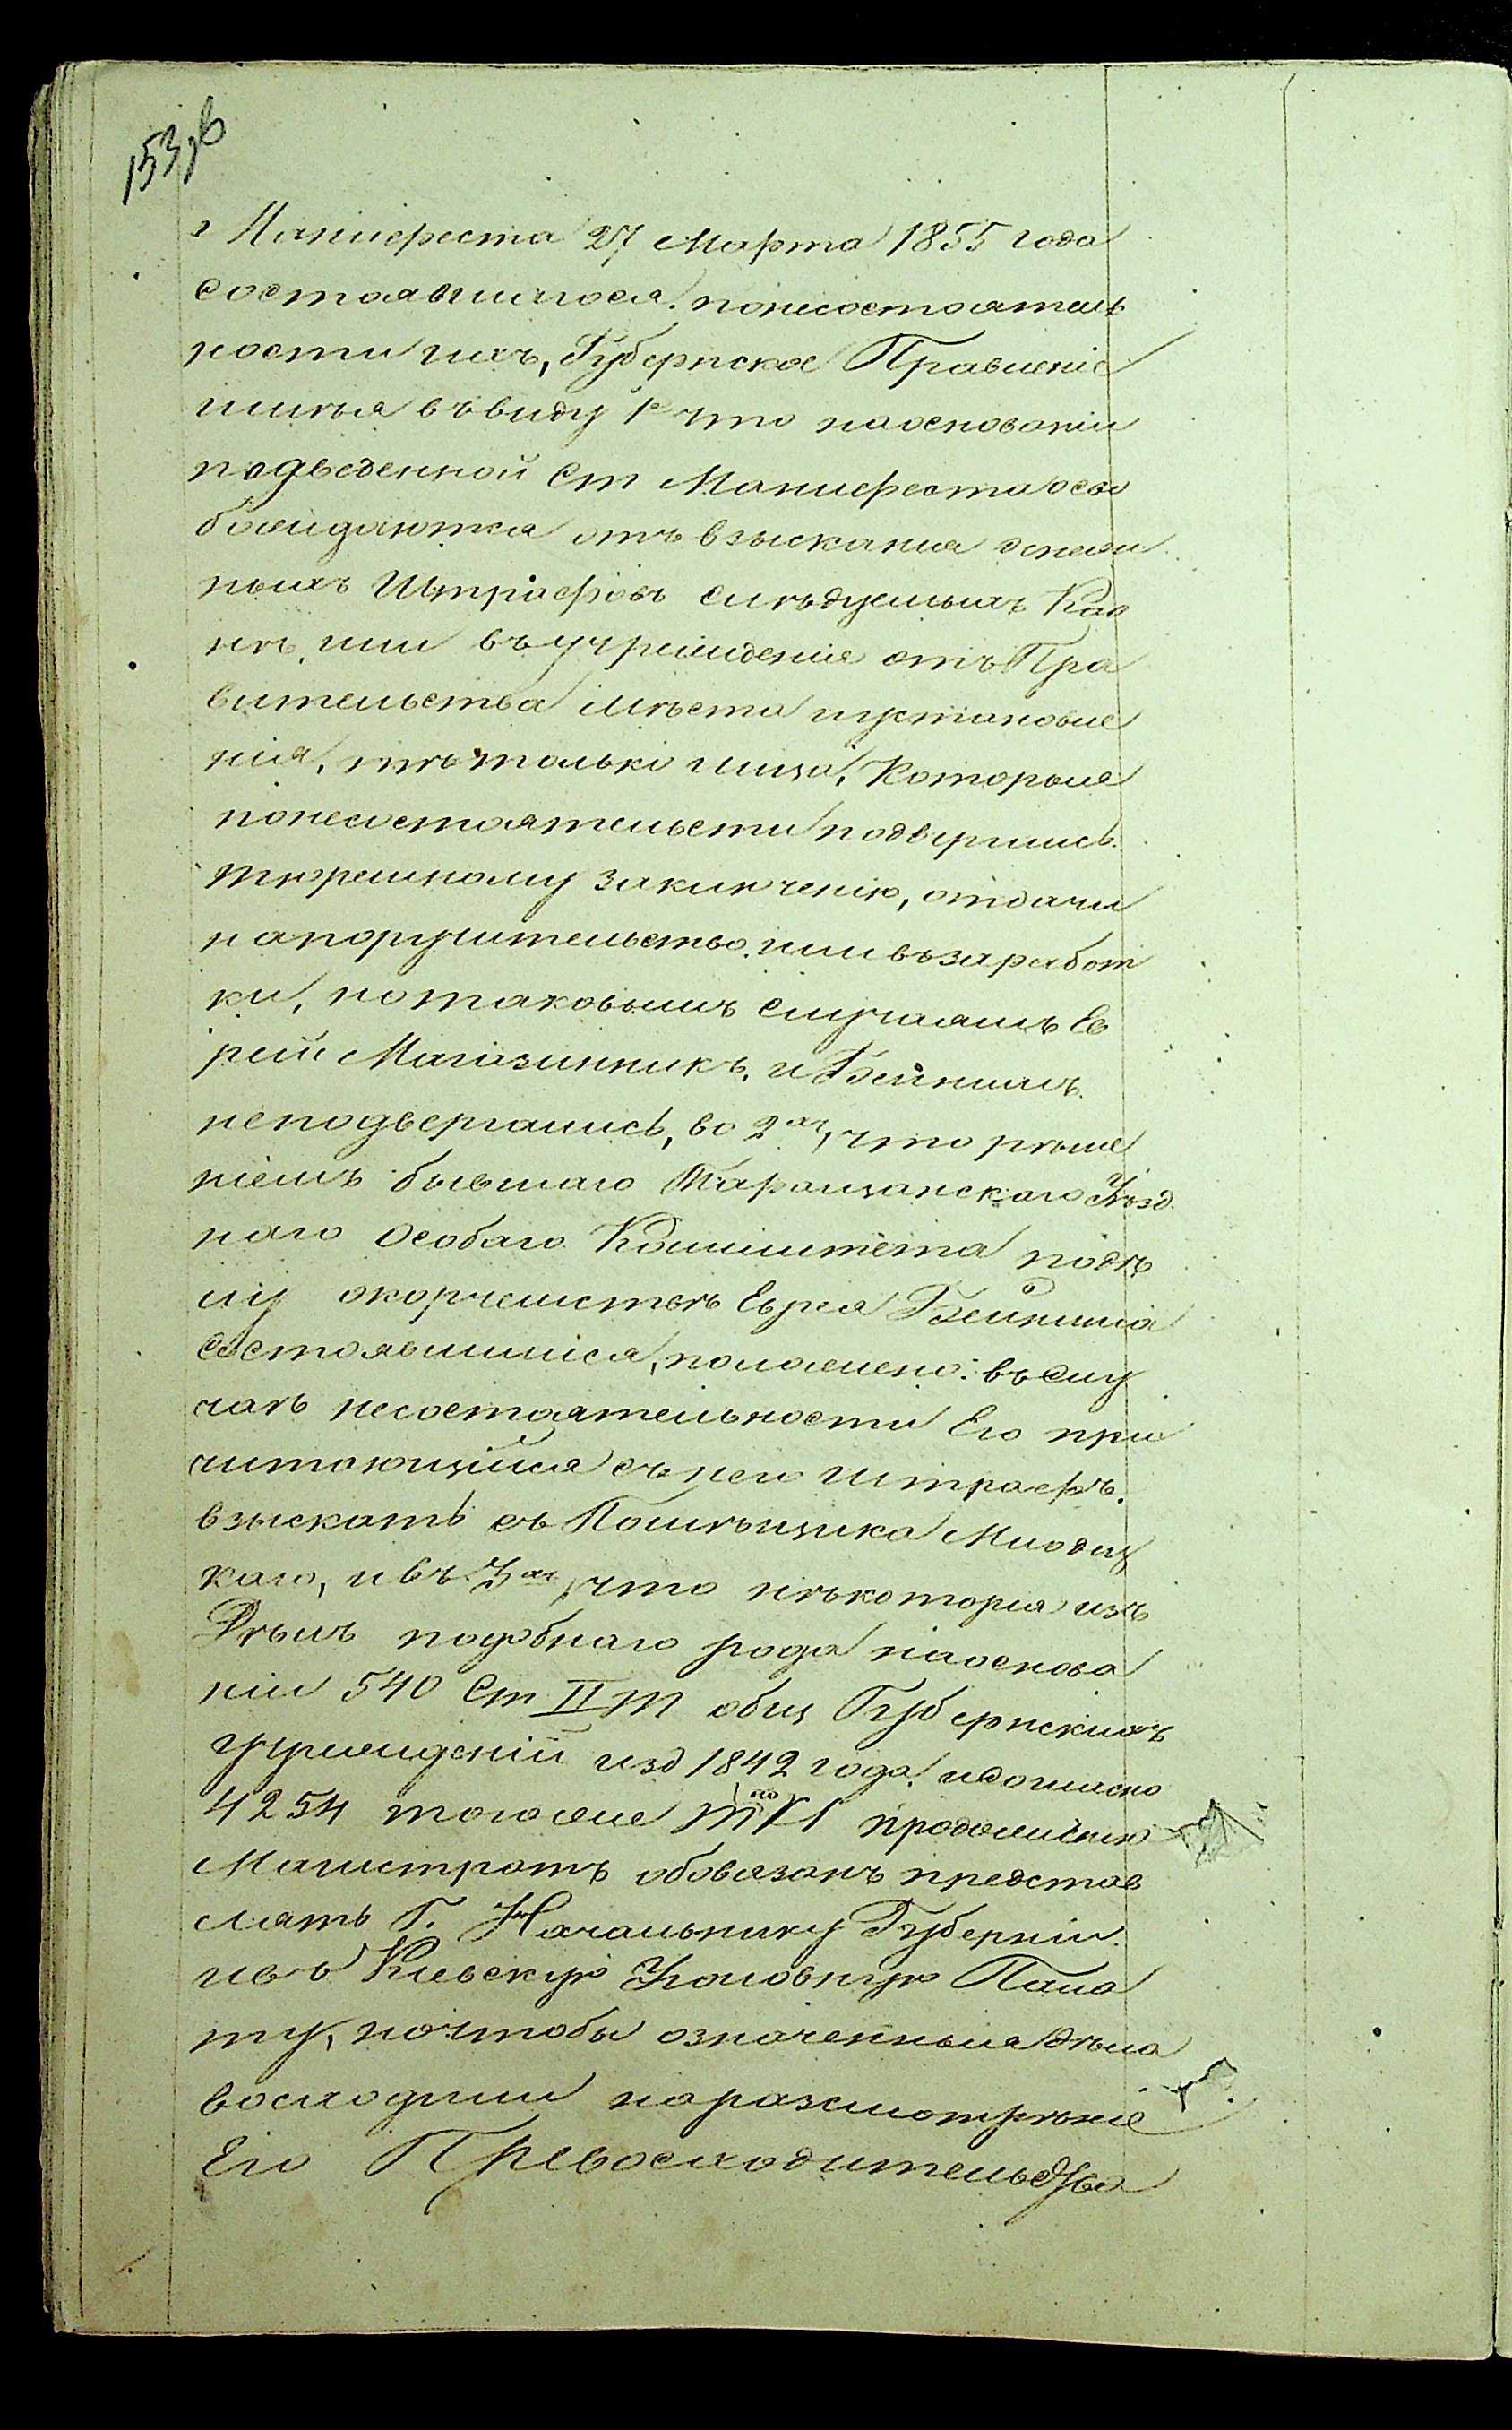 153об
г Манифеста 27 Марта 1855 года
состоявшагося. понесостоятель
ности ихъ, Губернское Правленіе
имѣя въ виду 1е что наоснованіи
подведенной Ст Манифеста осво
бождаются отъ взысканія денеж
ныхъ Штрафовъ слѣдуемыхъ Каз
нѣ, или въ учрежденіе отъ Пра
вительства мѣста иустановле
нія, тѣ только лица, Которыя
понесостоятельсти подверглись
тюремному заключенію, отдачи
напоручительство. или възаработ
ки, но таковымъ случаямъ Ев
реи Магазинникъ, и Бейнишъ
неподвергались, во 2хъ, что рѣше
ніемъ бывшаго Таращанскаго Уѣзд
наго Особаго Коммитета подѣ
лу окорчемствѣ Еврея Бейниша
состоявшимся, положено: въ слу
чаѣ несостоятельности Его при
читающійся съ него штрафъ.
взыскать съ Помѣщика Млодец
каго, ивъ 3хъ, что нѣкоторыя изъ
Дѣлъ подобнаго рода наоснова
ніи 540 Ст II Т общ Губернскихъ
учрежденій изд 1842 года. исогласно
4254 тогоже Т по VI продолженію
Магистратъ обовязанъ представ
лять Г. Начальнику Губерніи
ивъ Кіевскую Уголовную Пала
ту, ночтобы означенныя дѣла
восходили наразсмотрѣніе
Его Превосходительства